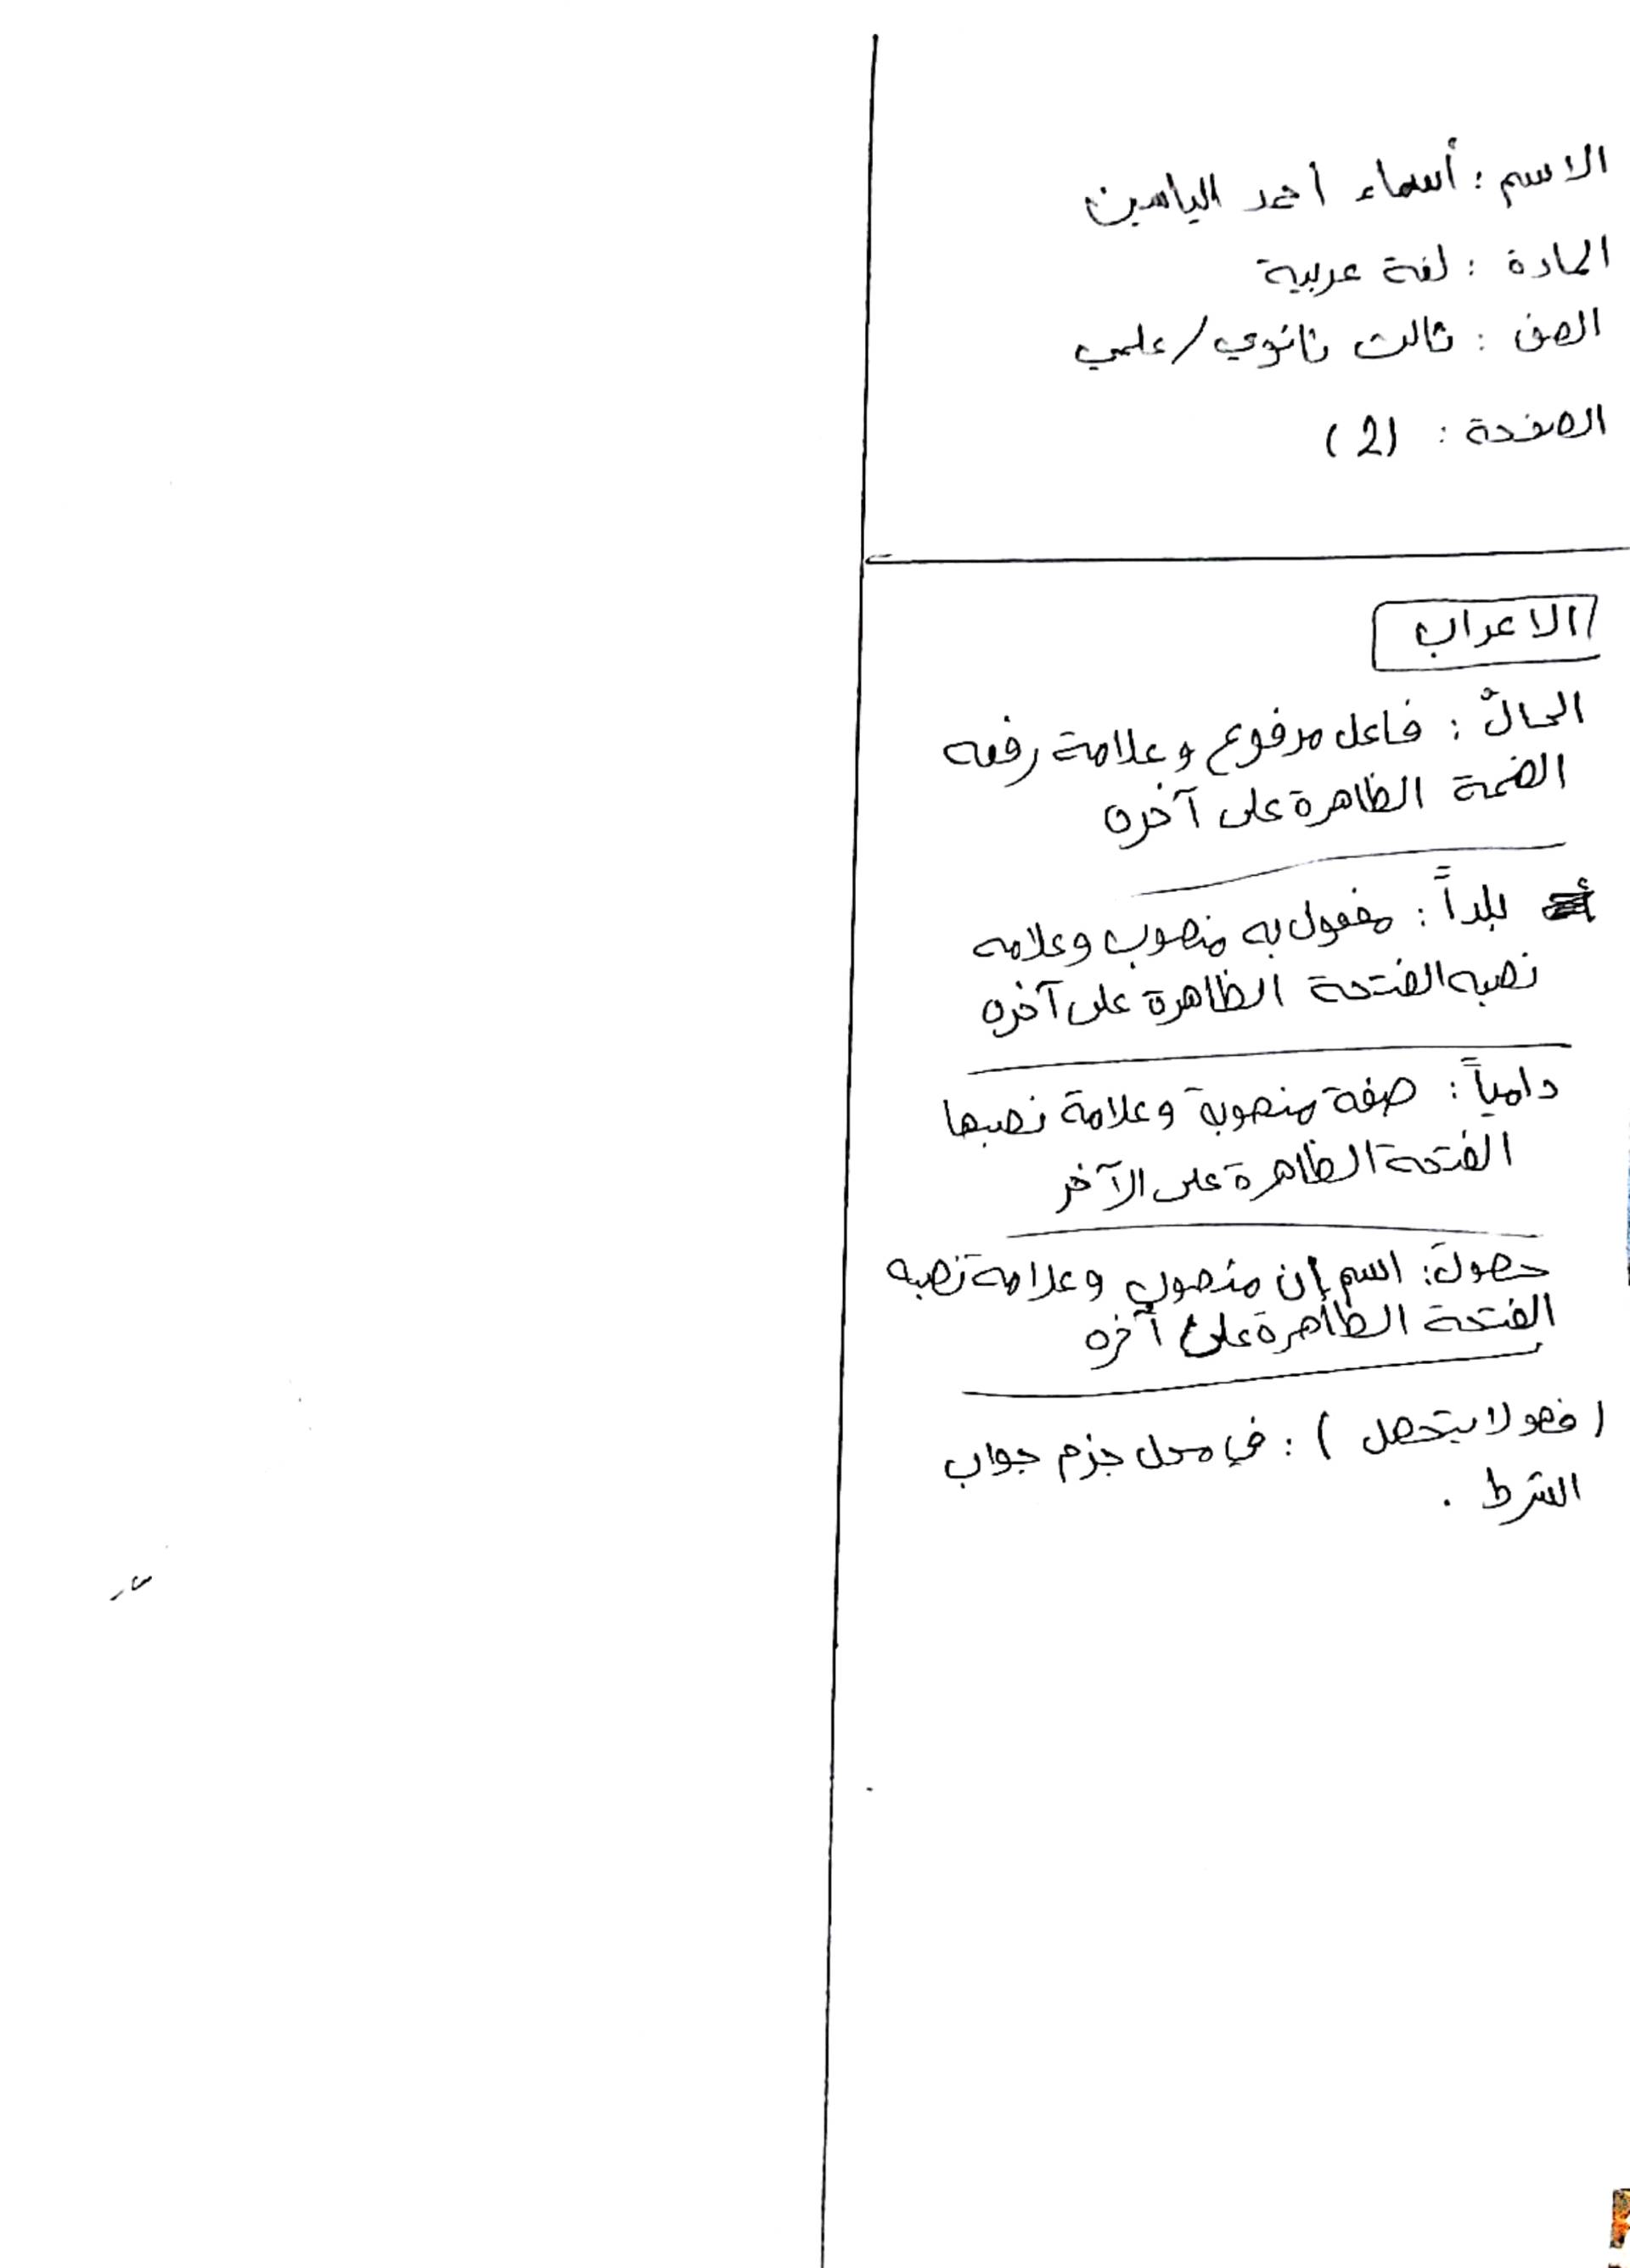 الاسم : أسماء أحمد الياسين
المادة : لغة عربية
الصف : ثالث ثانوي/علمي
الصفحة : (2)
الاعراب
الحالُ : فاعل مرفوع وعلامة رفعه
الضمة الظاهرة على آخره
بلداً : مفعول به منصوب وعلامه
نصبه الفتحة الظاهرة على آخره
دامياً : صفة منصوبة وعلامة نصبها
الفتحة الظاهرة على الآخر
حصولَ : اسم إن منصوب وعلامة نصبه
الفتحة الظاهرة على آخره
(فهو لا يتحصل) : في محل جزم جواب
الشرط .